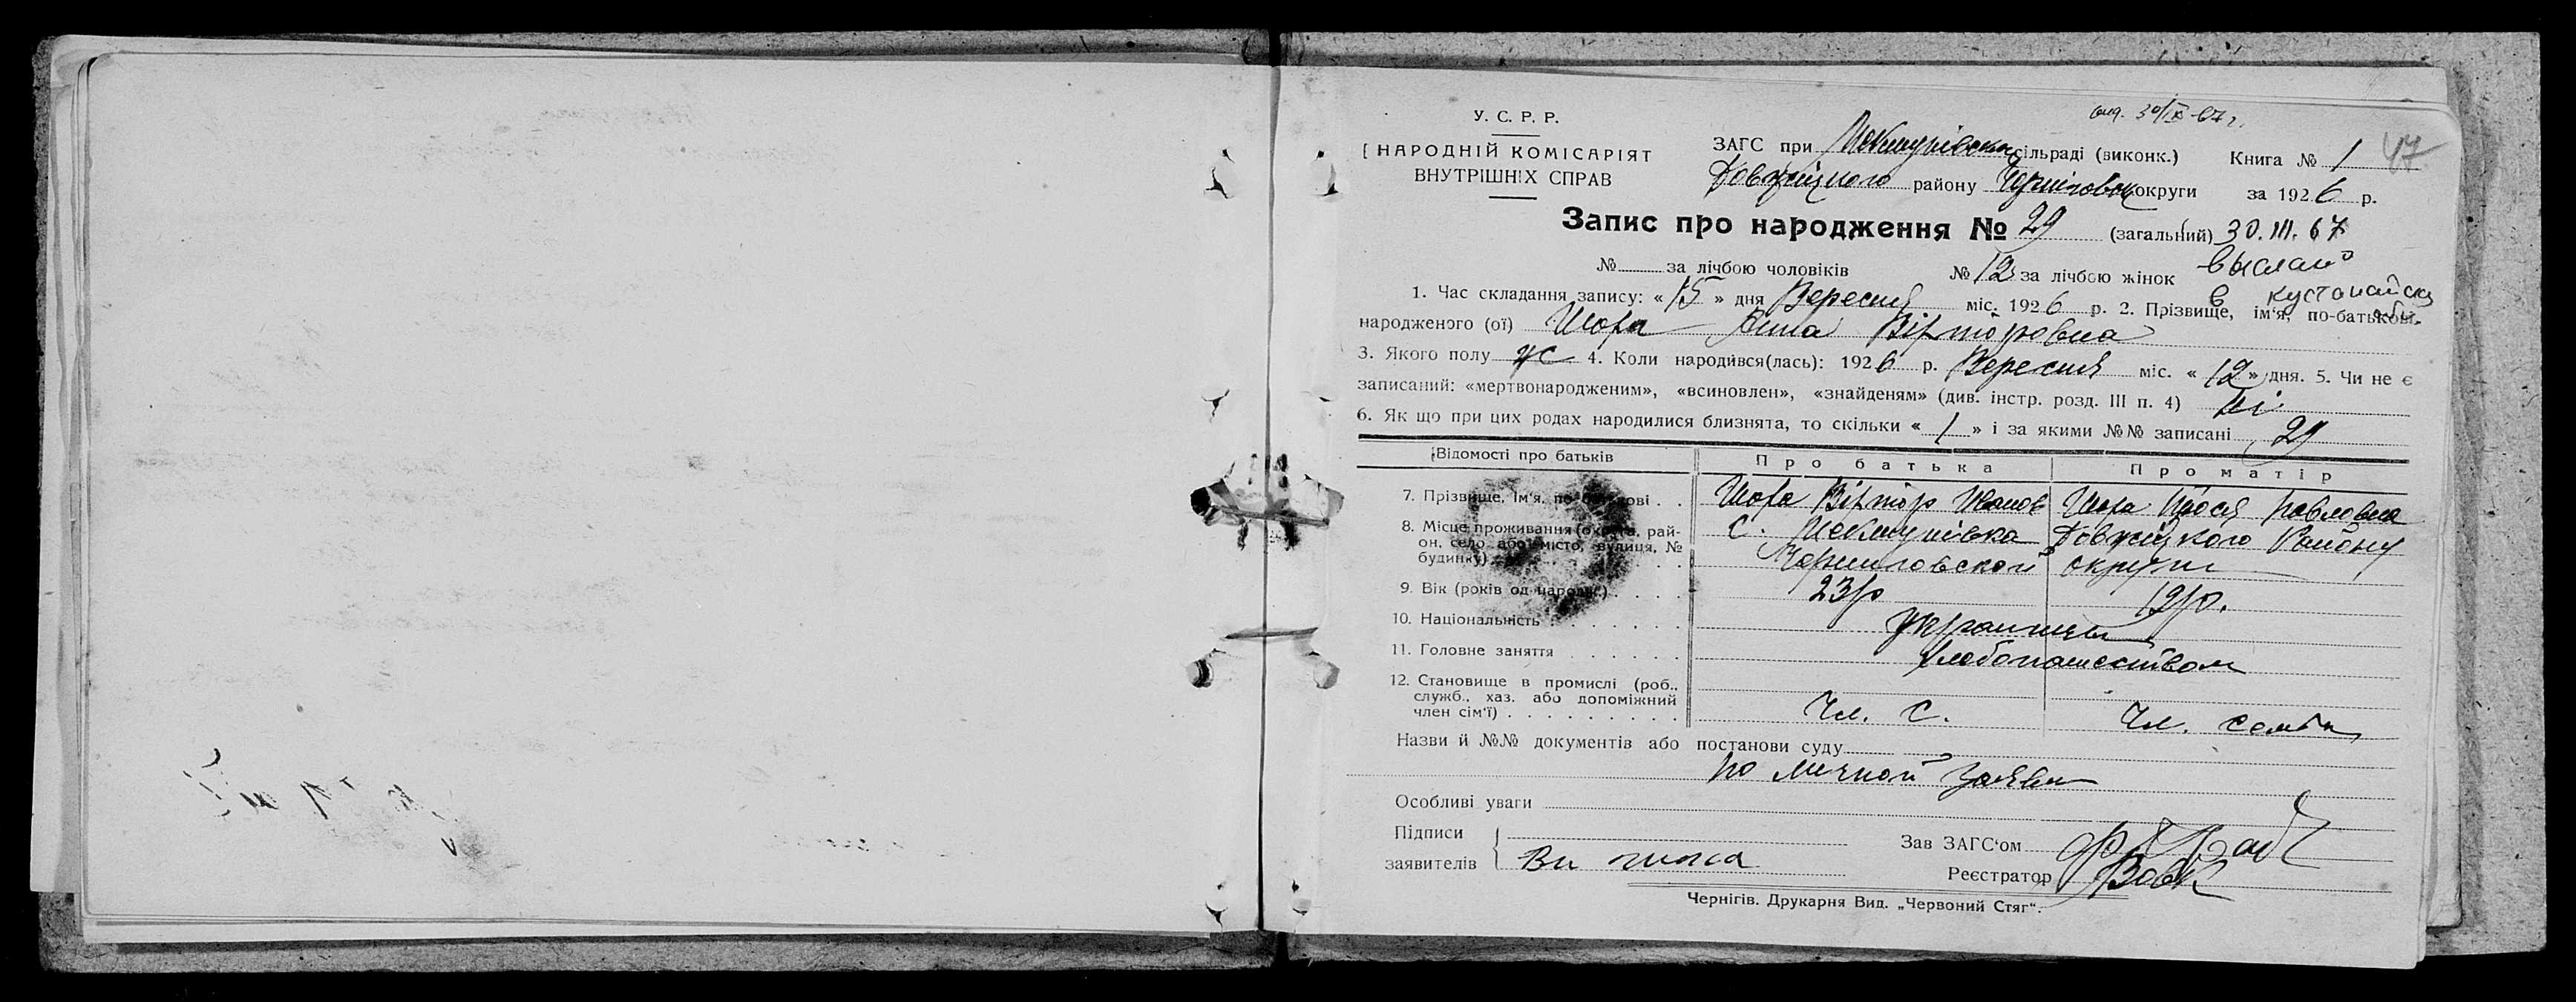 вид. 30/IX-67 г.
У. С. Р. Р.
НАРОДНІЙ КОМІСАРІЯТ
ВНУТРІШНІХ СПРАВ
ЗАГС при сільраді (виконк.) Книга № 1 47
району округи за 1926 р.
Запис про народження № 29 (загальний) 30.III.67
№ за лічбою чоловіків № 12 за лічбою жінок выслано
1. Час складання запису: « 15 » дня Вересня міс. 1926 р. 2. Прізвище, ім'я, по-батькові в кустанайскую обл.
народженого (ої) Шора Вікторовна
3. Якого полу ж 4. Коли народився(лась): 1926 р. Вересня міс. « 12 » дня. 5. Чи не є
записаний: «мертвонародженим», «всиновлен», «знайденям» (див. інстр. розд. III п. 4) ні
6. Як що при цих родах народилися близнята, то скільки « 1 » і за якими №№ записані 29
Відомості про батьків Про батька Про матір
7. Прізвище, ім'я, по-батькові . . Шора Віктор Иванов Шора Павловна
8. Місце проживання (округа, рай- с. Району
он, село або місто, вулиця, № Черниговской округи
будинку)
9. Вік (років од народж.) . . . . 23 р 19 р.
10. Національність . . . . . . . Українцы
11. Головне заняття . . . . . . Хлебопашеством
12. Становище в промислі (роб.,
служб., хаз. або допоміжний
член сім'ї) . . . . . . . . . . Чл. с. Чл. семьи
Назви й №№ документів або постанови суду
по личной заяви
Особливі уваги
Підписи
заявителів Зав ЗАГС'ом
Реєстратор Вовк
Чернігів. Друкарня Вид. „Червоний Стяг".